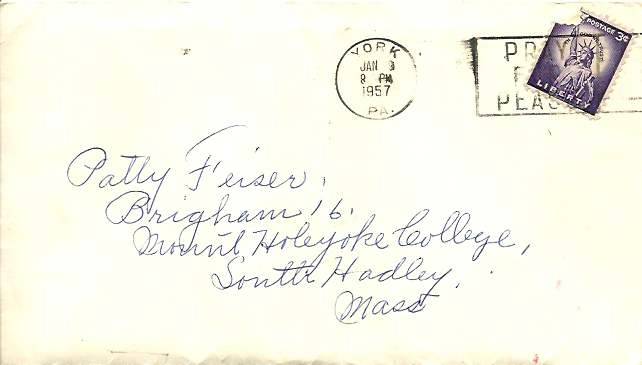 YORK
JAN 3
8 PM
1957
PA.
PRAY
PEACE
POSTAGE 3¢
LIBERTY
Patty Feiser.
Brigham 16.
Mount Holyoke College,
South Hadley.
Mass